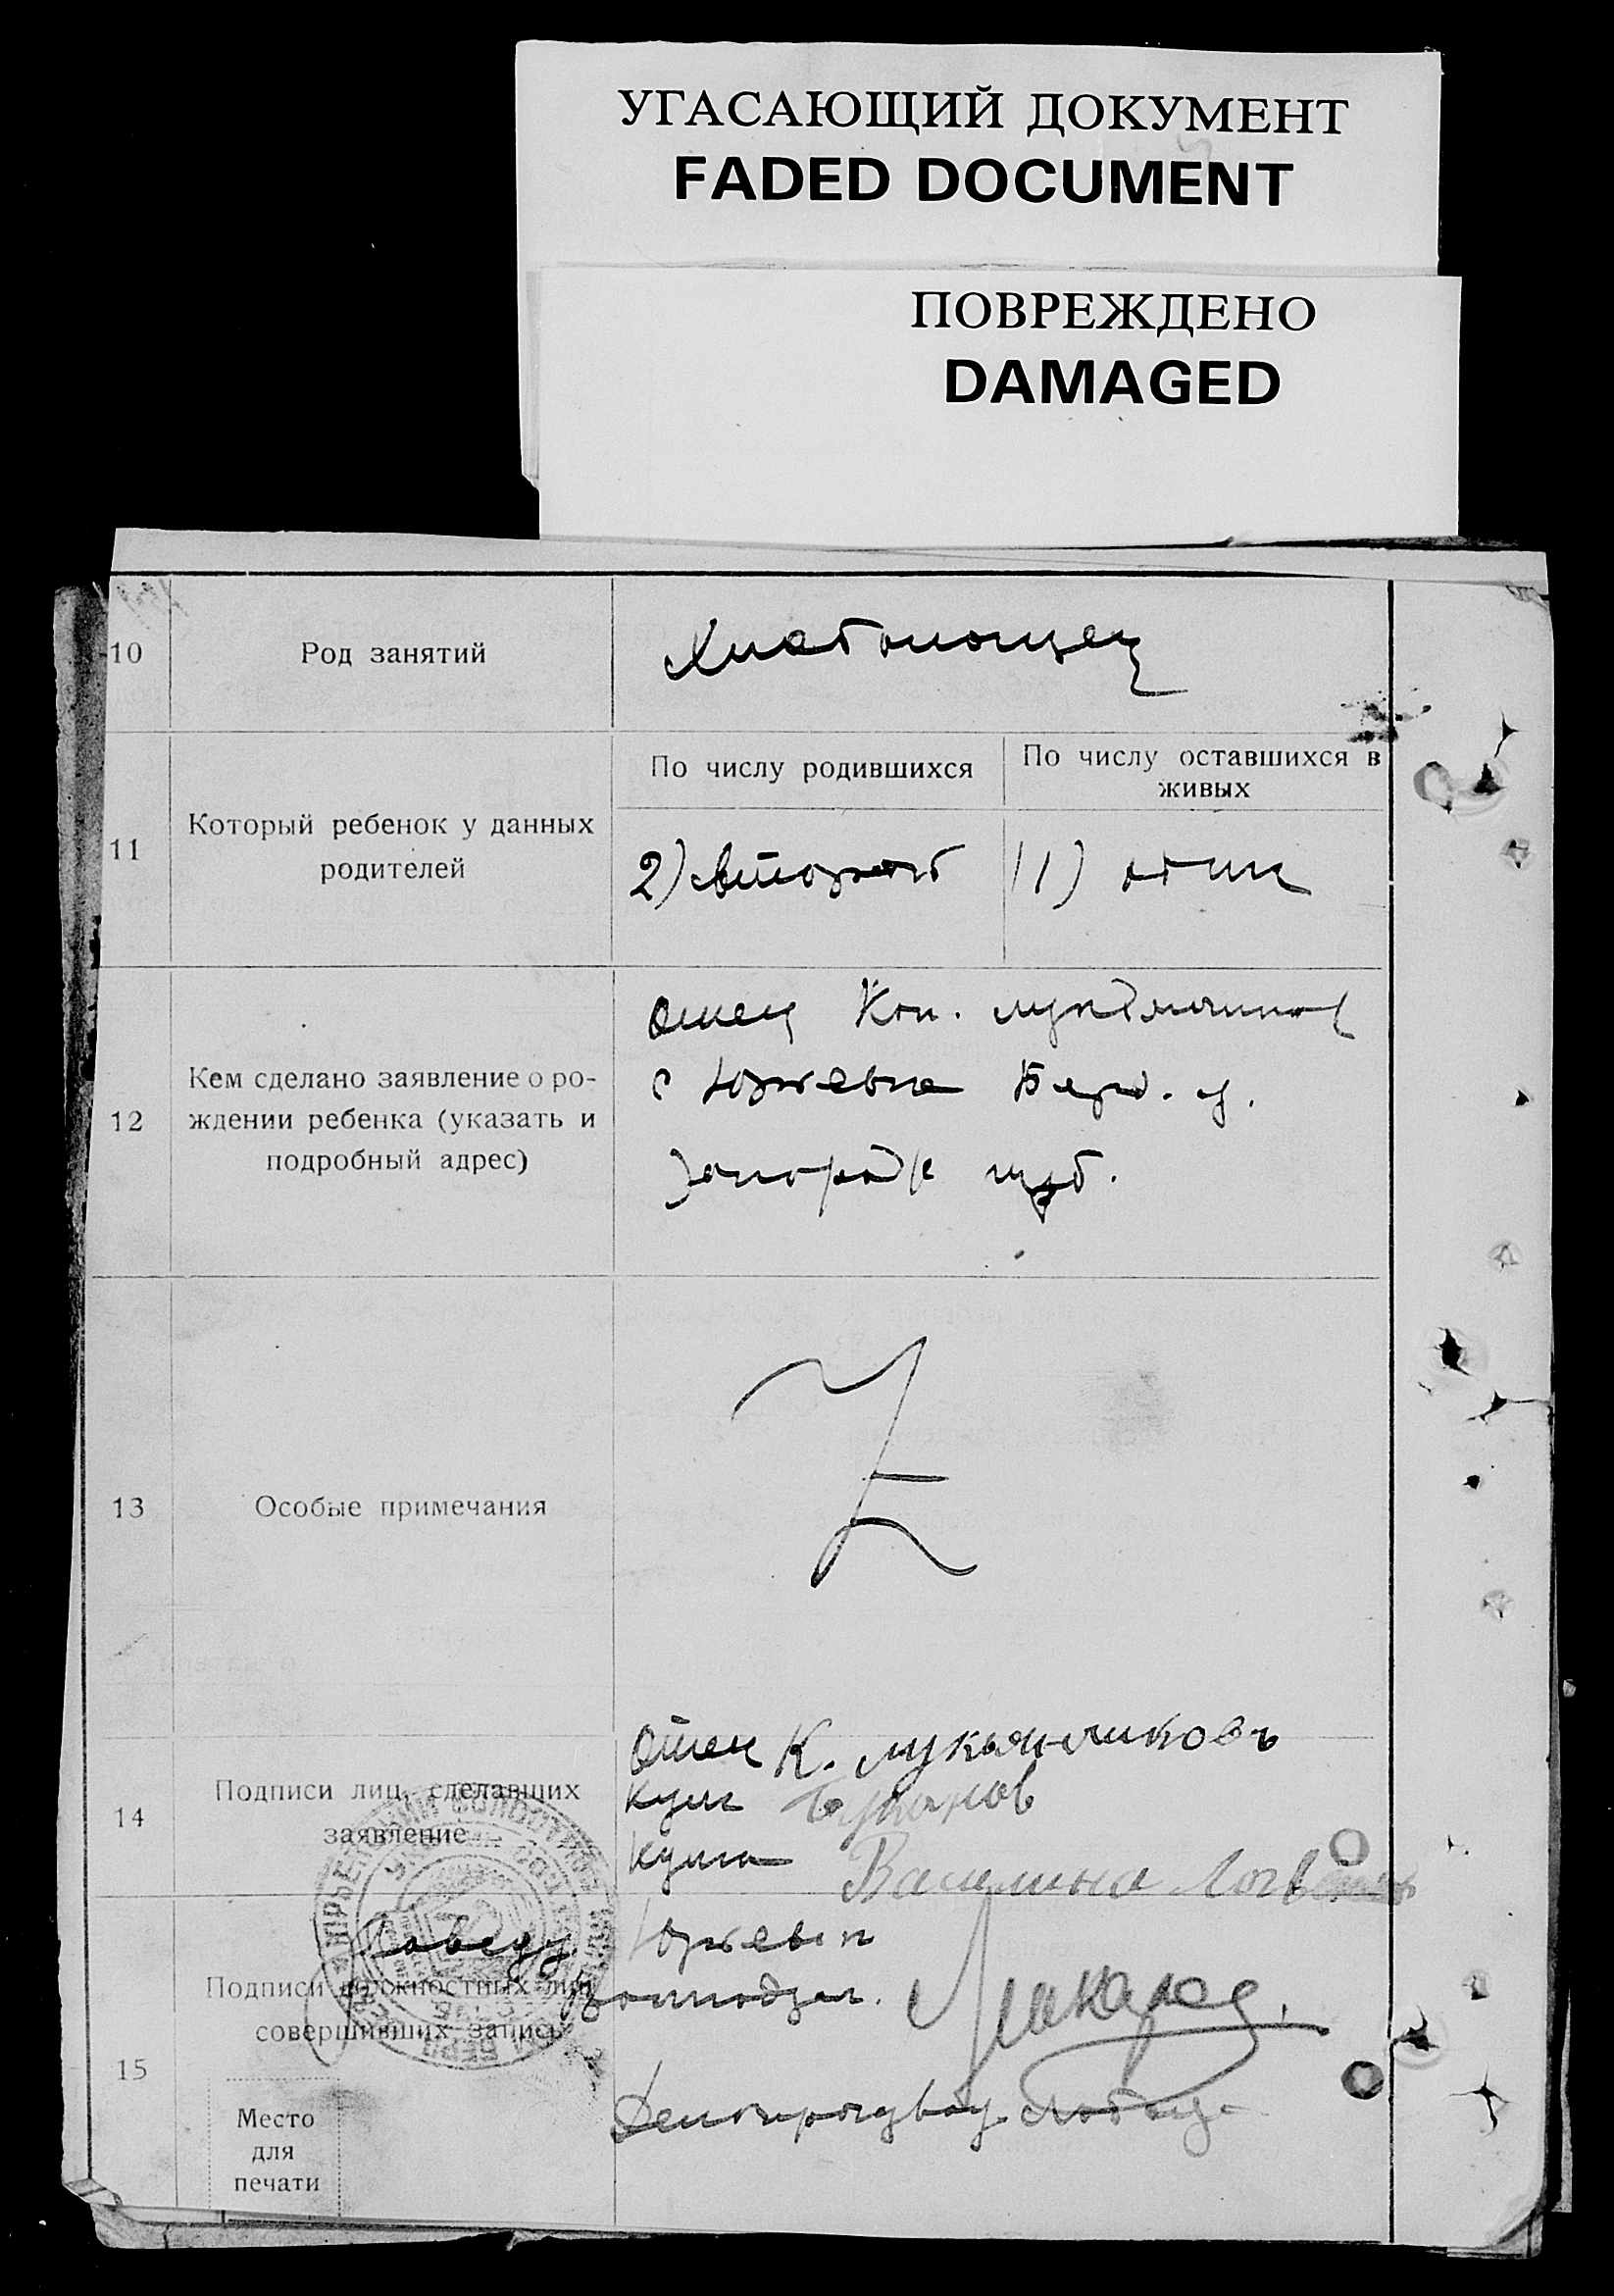 УГАСАЮЩИЙ ДОКУМЕНТ
FADED DOCUMENT
ПОВРЕЖДЕНО
DAMAGED
10
Род занятий
Хлебопашец
11
Который ребенок у данных
родителей
По числу родившихся
По числу оставшихся в
живых
2) второй
1) один
12
Кем сделано заявление о ро-
ждении ребенка (указать и
подробный адрес)
Отец Кон. Лукьянчиков
с Юрьевка Берд. у.
Запорож губ.
13
Особые примечания
14
Подписи лиц, сделавших
заявление
Отец К. Лукьянчиковъ
кум
кума Василина
15
Подписи должностных лиц
совершивших запись
Заведу. Юрьевск
Делопроизвод.
Место
для
печати